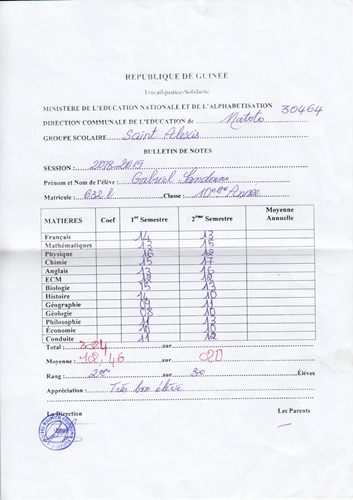 REPUBLIQUE DE GUINEE
Travail-justice-Solidarité
MINISTERE DE L'EDUCATION NATIONALE ET DE L'ALPHABETISATION
30464
DIRECTION COMMUNALE DE L'EDUCATION de Matoto
GROUPE SCOLAIRE Saint Alexis
BULLETIN DE NOTES
SESSION : 2018-2019
Prénom et Nom de l'élève : Gabriel
Matricule : 632 Classe : 10ème Année
MATIERES Coef 1er Semestre 2ème Semestre Moyenne Annuelle
Français 14 13
Mathématiques 13 15
Physique 16 12
Chimie 15 17
Anglais 13 16
ECM 12
Biologie 15 13
Histoire 14 10
Géographie 09 11
Géologie 08 10
Philosophie 11 13
Économie 10 10
Conduite 11 12
Total : 324 sur
Moyenne : 12,46 sur 20
Rang : 2er sur 30 Élèves
Appréciation : Très bon élève
La Direction Les Parents